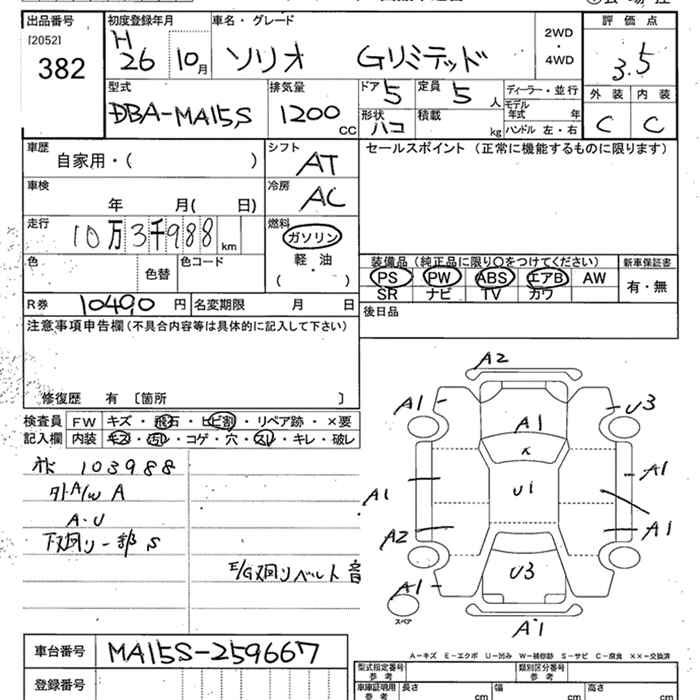 出品番号 初度登録年月 車名・グレード 2WD ・ 4WD 評価点
[2052] 382 H 26 10月 ソリオ Gリミテッド 3.5
型式 排気量 ドア 5 定員 5 人 ディーラー・並行 外装 内装
DBA-MA15S 1200 cc 形状 ハコ 積載 kg モデル年式 年 C C
ハンドル 左・右
車歴 シフト セールスポイント (正常に機能するものに限ります)
自家用・( ) AT
車検 冷房
年 月( 日) AC
走行 燃料
10万3千988 km ガソリン
色 色替 色コード 軽・油 装備品 (純正品に限り○をつけてください) 新車保証書
( ) PS PW ABS エアB AW 有・無
R券 10490 円 名変期限 月 日 SR ナビ TV カワ
注意事項申告欄(不具合内容等は具体的に記入して下さい) 後日品
修復歴 有 〔箇所 〕
検査員 FW キズ・飛石・ヒビ割・リペア跡・×要
記入欄 内装 キズ・汚れ・コゲ・穴・スレ・キレ・破レ
103988
外A/W A
A・U
下廻り一部S
E/G廻りベルト音
A2
A1 U3
A1
A1 U1 A1
A2 A1
A1 U3
スペア
A1
車台番号 MA15S-259667
A-キズ E-エクボ U-凹み W-補修跡 S-サビ C-腐食 ××-交換済
登録番号 型式指定番号 参考 類別区分番号 参考
車庫証明用 参考 長さ cm 幅 cm 高さ cm